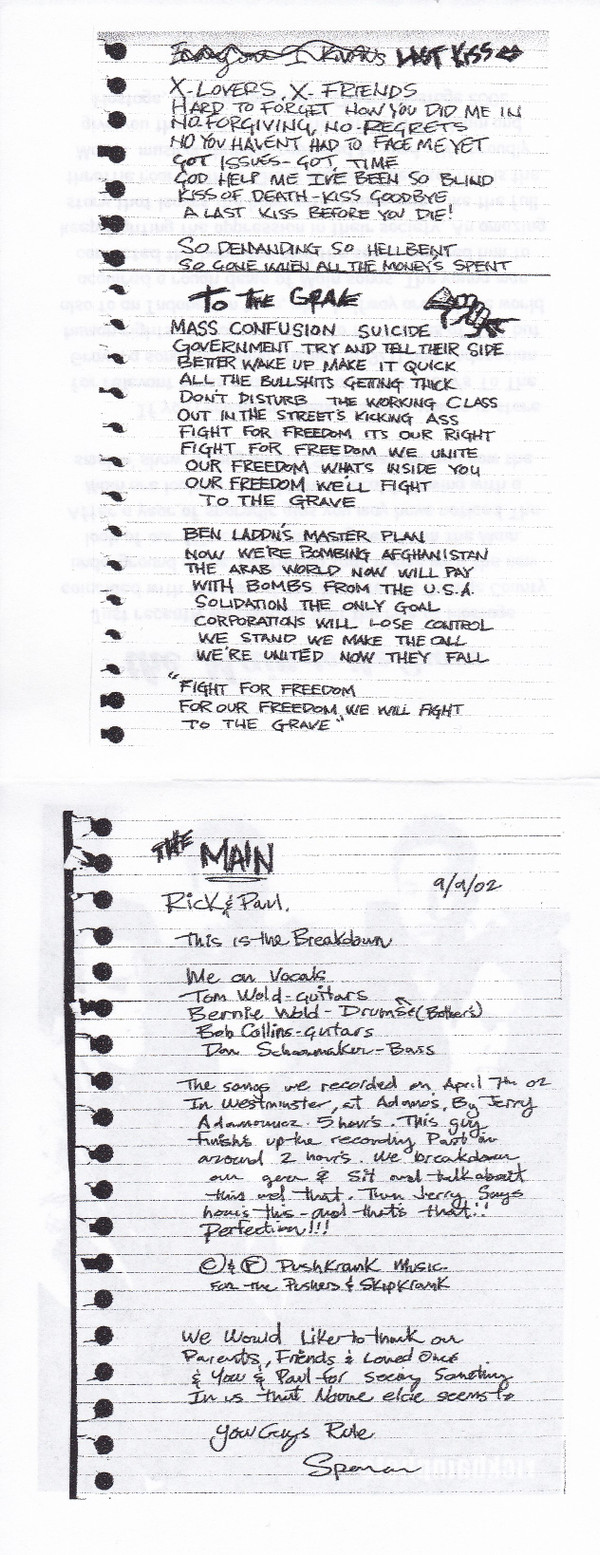 Everyone I Know's LAST KISS
X-LOVERS, X-FRIENDS
HARD TO FORGET HOW YOU DID ME IN
NO FORGIVING, NO-REGRETS
NO YOU HAVEN'T HAD TO FACE ME YET
GOT ISSUES-GOT TIME
GOD HELP ME I'VE BEEN SO BLIND
KISS OF DEATH-KISS GOODBYE
A LAST KISS BEFORE YOU DIE!
SO DEMANDING SO HELLBENT
SO GONE WHEN ALL THE MONEY'S SPENT
TO THE GRAVE
MASS CONFUSION SUICIDE
GOVERNMENT TRY AND TELL THEIR SIDE
BETTER WAKE UP MAKE IT QUICK
ALL THE BULLSHITS GETTING THICK
DON'T DISTURB THE WORKING CLASS
OUT IN THE STREET'S KICKING ASS
FIGHT FOR FREEDOM ITS OUR RIGHT
FIGHT FOR FREEDOM WE UNITE
OUR FREEDOM WHATS INSIDE YOU
OUR FREEDOM WE'LL FIGHT
TO THE GRAVE
BEN LADDN'S MASTER PLAN
NOW WE'RE BOMBING AFGHANISTAN
THE ARAB WORLD NOW WILL PAY
WITH BOMBS FROM THE U.S.A.
SOLIDATION THE ONLY GOAL
CORPORATIONS WILL LOSE CONTROL
WE STAND WE MAKE THE CALL
WE'RE UNITED NOW THEY FALL
"FIGHT FOR FREEDOM
FOR OUR FREEDOM WE WILL FIGHT
TO THE GRAVE"
THE MAIN
9/9/02
Rick & Paul,
This is the Breakdown
Me on Vocals
Tom Wold-guitars
Bernie Wold-Drums (Bothers)
Bob Collins-guitars
Don Schoonmaker-Bass
The songs we recorded on April 7th 02
In Westminster, at Adamos, By Jerry
5 hours. This guy
finishs up the recording Part in
around 2 hours. We breakdown
our gear & Sit and talk about
this and that. Then Jerry Says
here's this-and that's that!!
Perfection!!!
© & ℗ PushKrank Music
For the Pushers & SkipKrank
We Would Like to thank our
Parents, Friends & Loved Ones
& You & Paul for seeing Something
In us that Noone else seems to
You Guys Rule